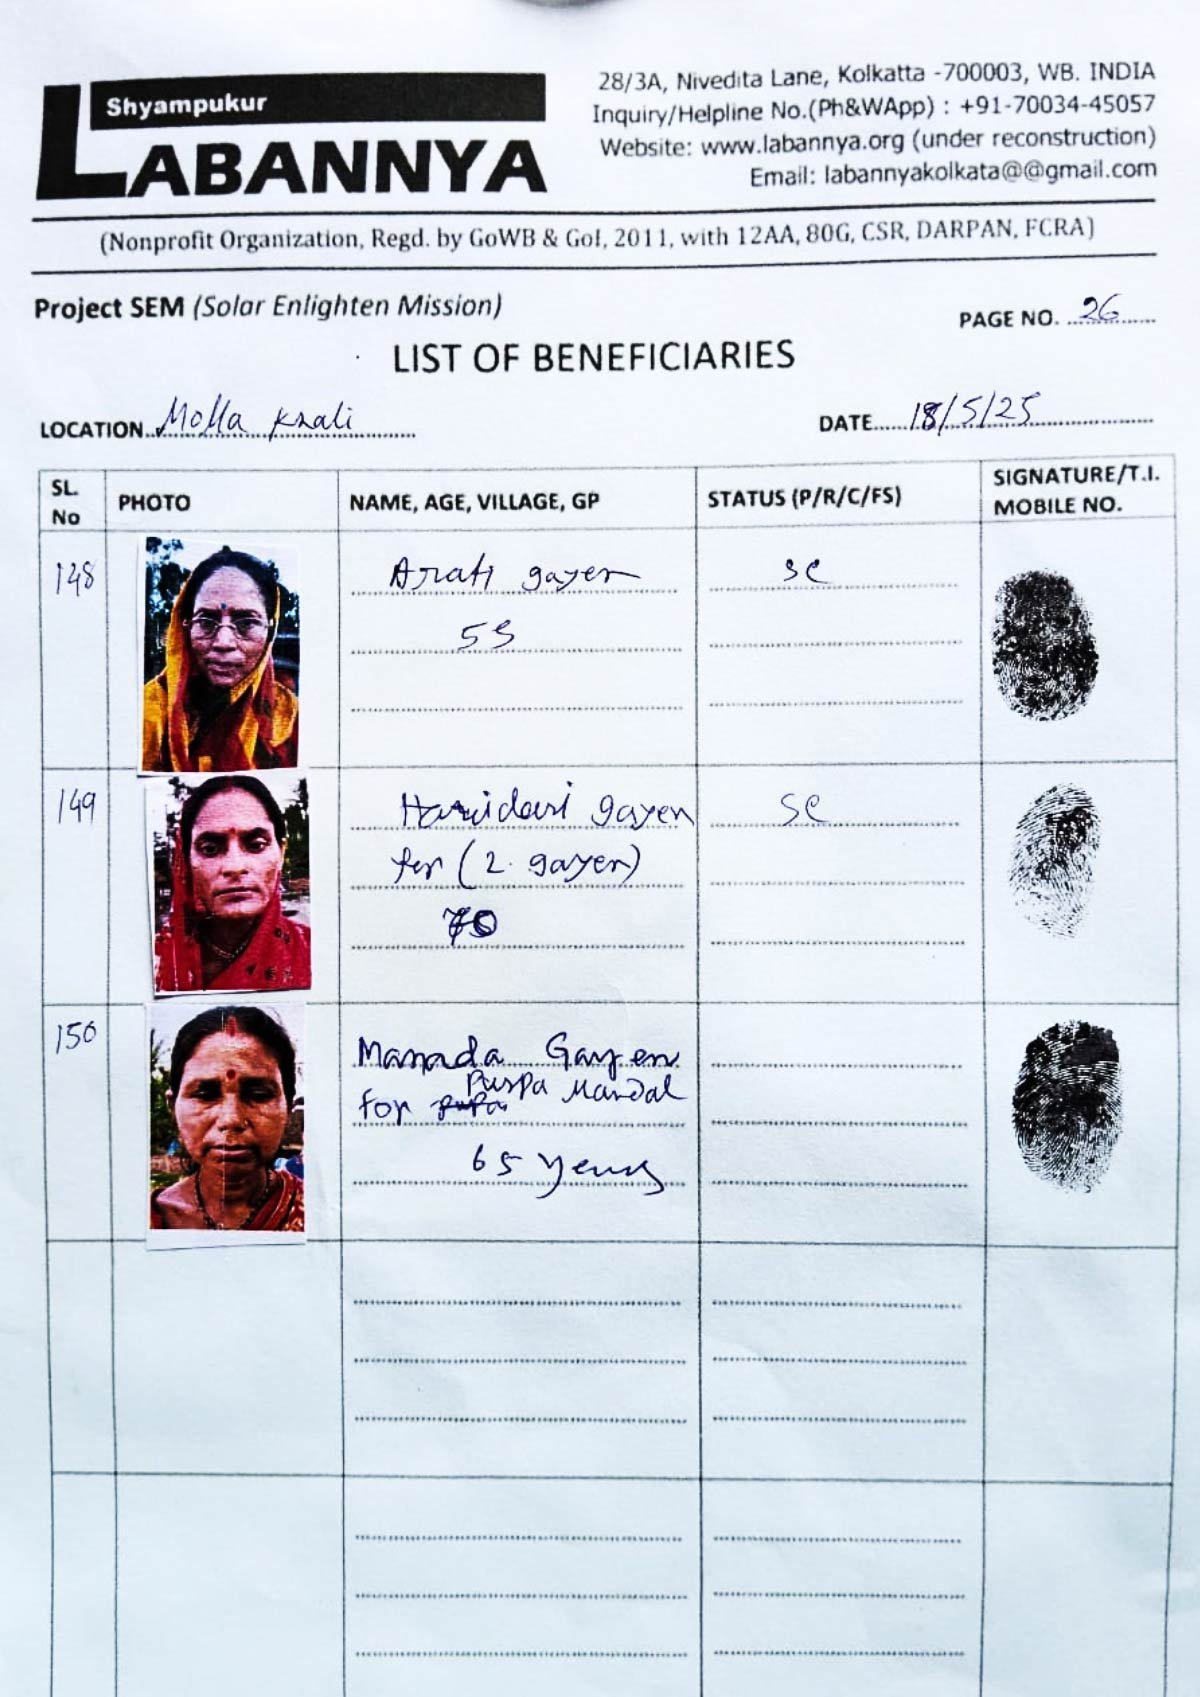 Shyampukur
LABANNYA
28/3A, Nivedita Lane, Kolkatta -700003, WB. INDIA
Inquiry/Helpline No.(Ph&WApp) : +91-70034-45057
Website: www.labannya.org (under reconstruction)
Email: labannyakolkata@@gmail.com
(Nonprofit Organization, Regd. by GoWB & GoI, 2011, with 12AA, 80G, CSR, DARPAN, FCRA)
Project SEM (Solar Enlighten Mission)
PAGE NO. 26
LIST OF BENEFICIARIES
LOCATION Molla Khali
DATE 18/5/25
SL. No
PHOTO
NAME, AGE, VILLAGE, GP
STATUS (P/R/C/FS)
SIGNATURE/T.I. MOBILE NO.
148
Arati gayen
SC
149
gayen
SC
(2. gayen)
70
150
Gayen
for Puspa Mandal
65 years